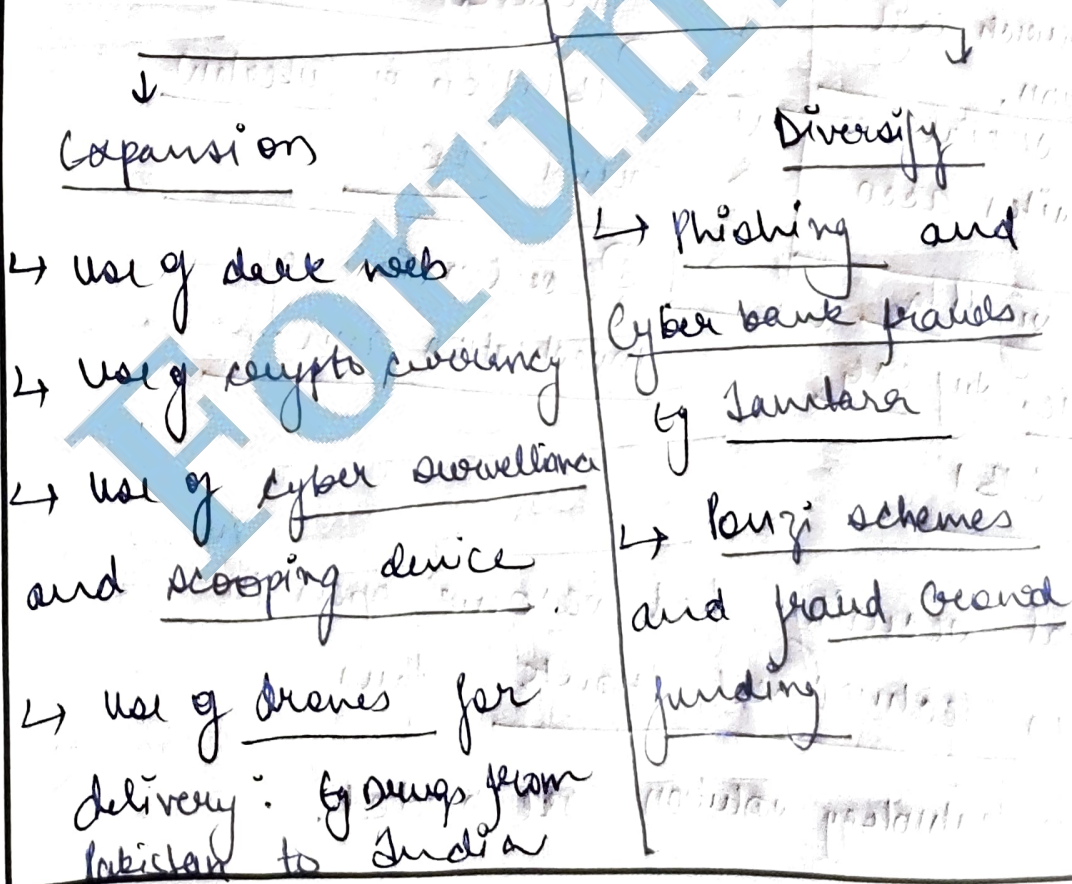 Expansion
↳ use of dark web
↳ use of crypto currency
↳ use of cyber survellance
and scooping device
↳ use of drones for
delivery: Eg Drugs from
Pakistan to India
Diversify
↳ Phishing and
Cyber bank frauds
Eg Jamtara
↳ Ponzi schemes
and fraud crowd
funding
Forum